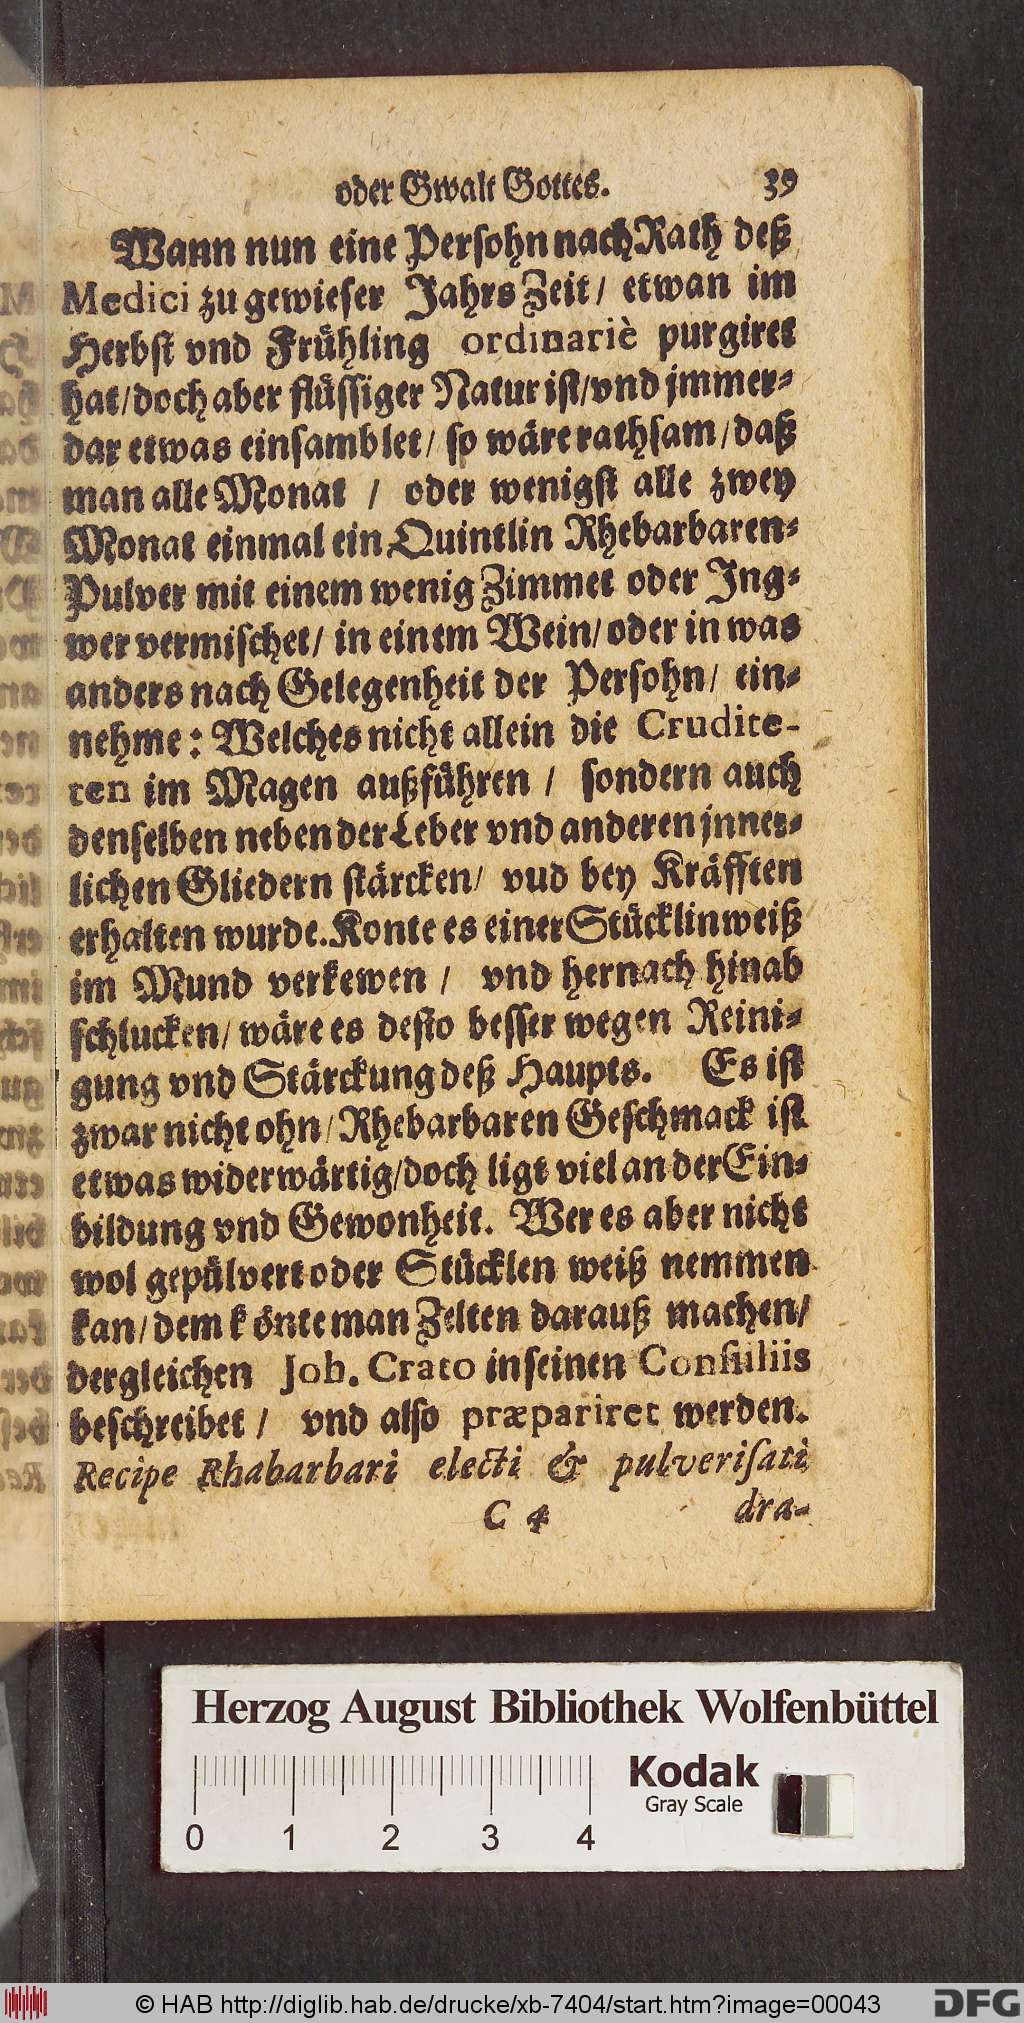 oder Gwalt Gottes. 39
Wann nun eine Persohn nach Rath deß
Medici zu gewieser Jahrs Zeit / etwan im
Herbst vnd Frühling ordinariè purgiret
hat / doch aber flüssiger Natur ist / vnd jmmer-
dar etwas einsamblet / so wäre rathsam / daß
man alle Monat / oder wenigst alle zwey
Monat einmal ein Quintlin Rhebarbaren-
Pulver mit einem wenig Zimmet oder Ing-
wer vermischet / in einem Wein / oder in was
anders nach Gelegenheit der Persohn / ein-
nehme: Welches nicht allein die Crudite-
ten im Magen außführen / sondern auch
denselben neben der Leber vnd anderen jnner-
lichen Gliedern stärcken / vud bey Kräfften
erhalten wurde. Konte es einer Stücklinweiß
im Mund verkewen / vnd hernach hinab
schlucken / wäre es desto besser wegen Reini-
gung vnd Stärckung deß Haupts. Es ist
zwar nicht ohn / Rhebarbaren Geschmack ist
etwas widerwärtig / doch ligt viel an der Ein-
bildung vnd Gewonheit. Wer es aber nicht
wol gepülvert oder Stücklen weiß nemmen
kan / dem könte man Zelten darauß machen /
dergleichen Joh. Crato in seinen Consiliis
beschreibet / vnd also præpariret werden.
Recipe Rhabarbari electi & pulverisati
C 4 dra-
Herzog August Bibliothek Wolfenbüttel
Kodak
Gray Scale
0 1 2 3 4
© HAB http://diglib.hab.de/drucke/xb-7404/start.htm?image=00043
DFG